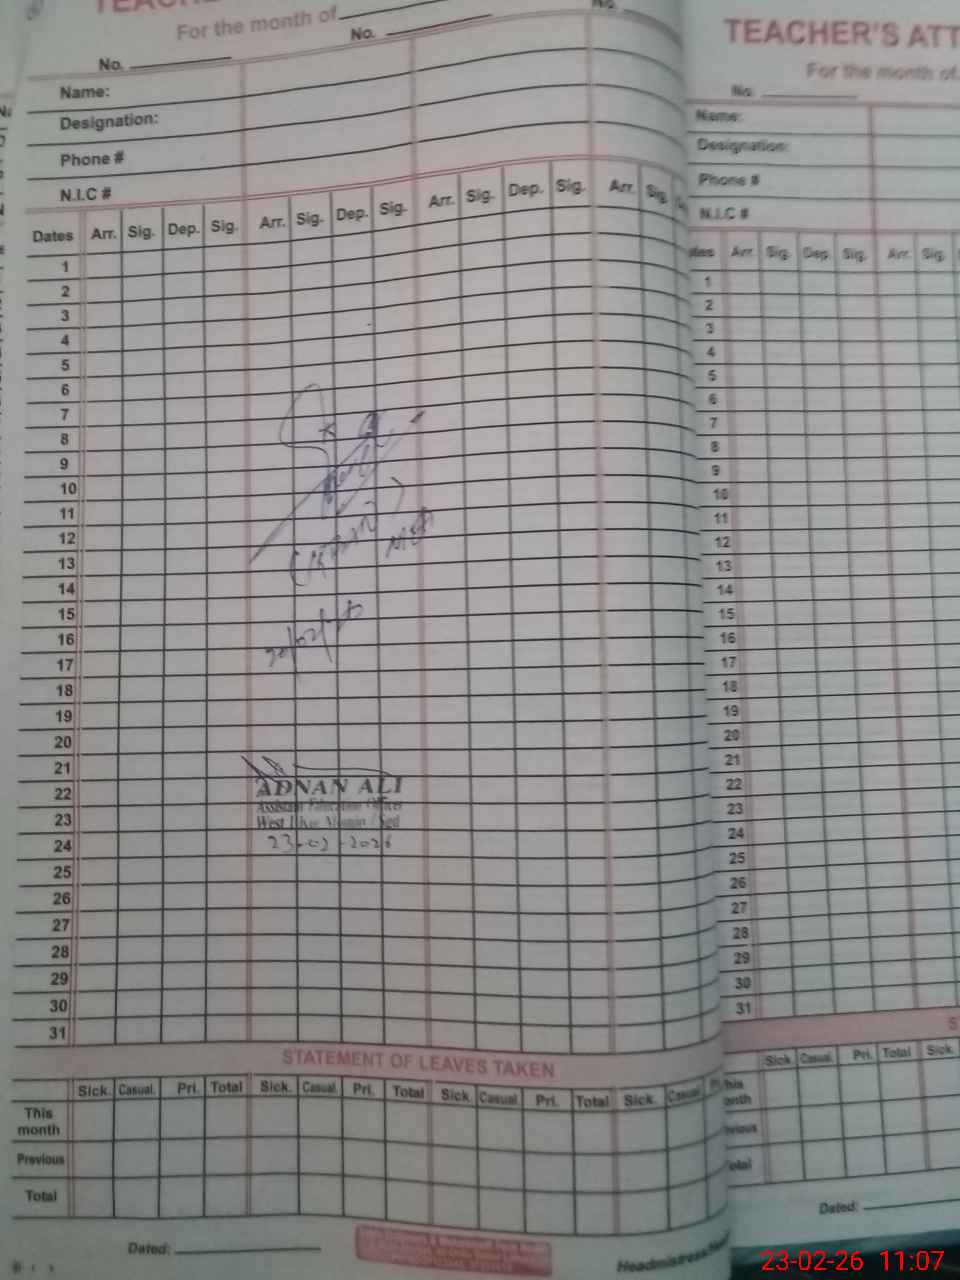 For the month of
No.
No.
No.
Name:
Designation:
Phone #
N.I.C #
Dates Arr. Sig. Dep. Sig. Arr. Sig. Dep. Sig. Arr. Sig. Dep. Sig. Arr. Sig.
1
2
3
4
5
6
7
8
9
10
11
12
13
14
15
16
17
18
19
20
21
22
23
24
25
26
27
28
29
30
31
ADNAN ALI
Assistant Education Officer
West
STATEMENT OF LEAVES TAKEN
Sick. Casual. Pri. Total Sick. Casual. Pri. Total Sick. Casual. Pri. Total Sick. Casual.
This month
Previous
Total
Dated:
TEACHER'S ATT
For the month of
No.
Name:
Designation:
Phone #
N.I.C #
Arr. Sig. Dep. Sig. Arr. Sig.
1
2
3
4
5
6
7
8
9
10
11
12
13
14
15
16
17
18
19
20
21
22
23
24
25
26
27
28
29
30
31
Sick. Casual. Pri. Total Sick.
Dated:
23-02-26 11:07